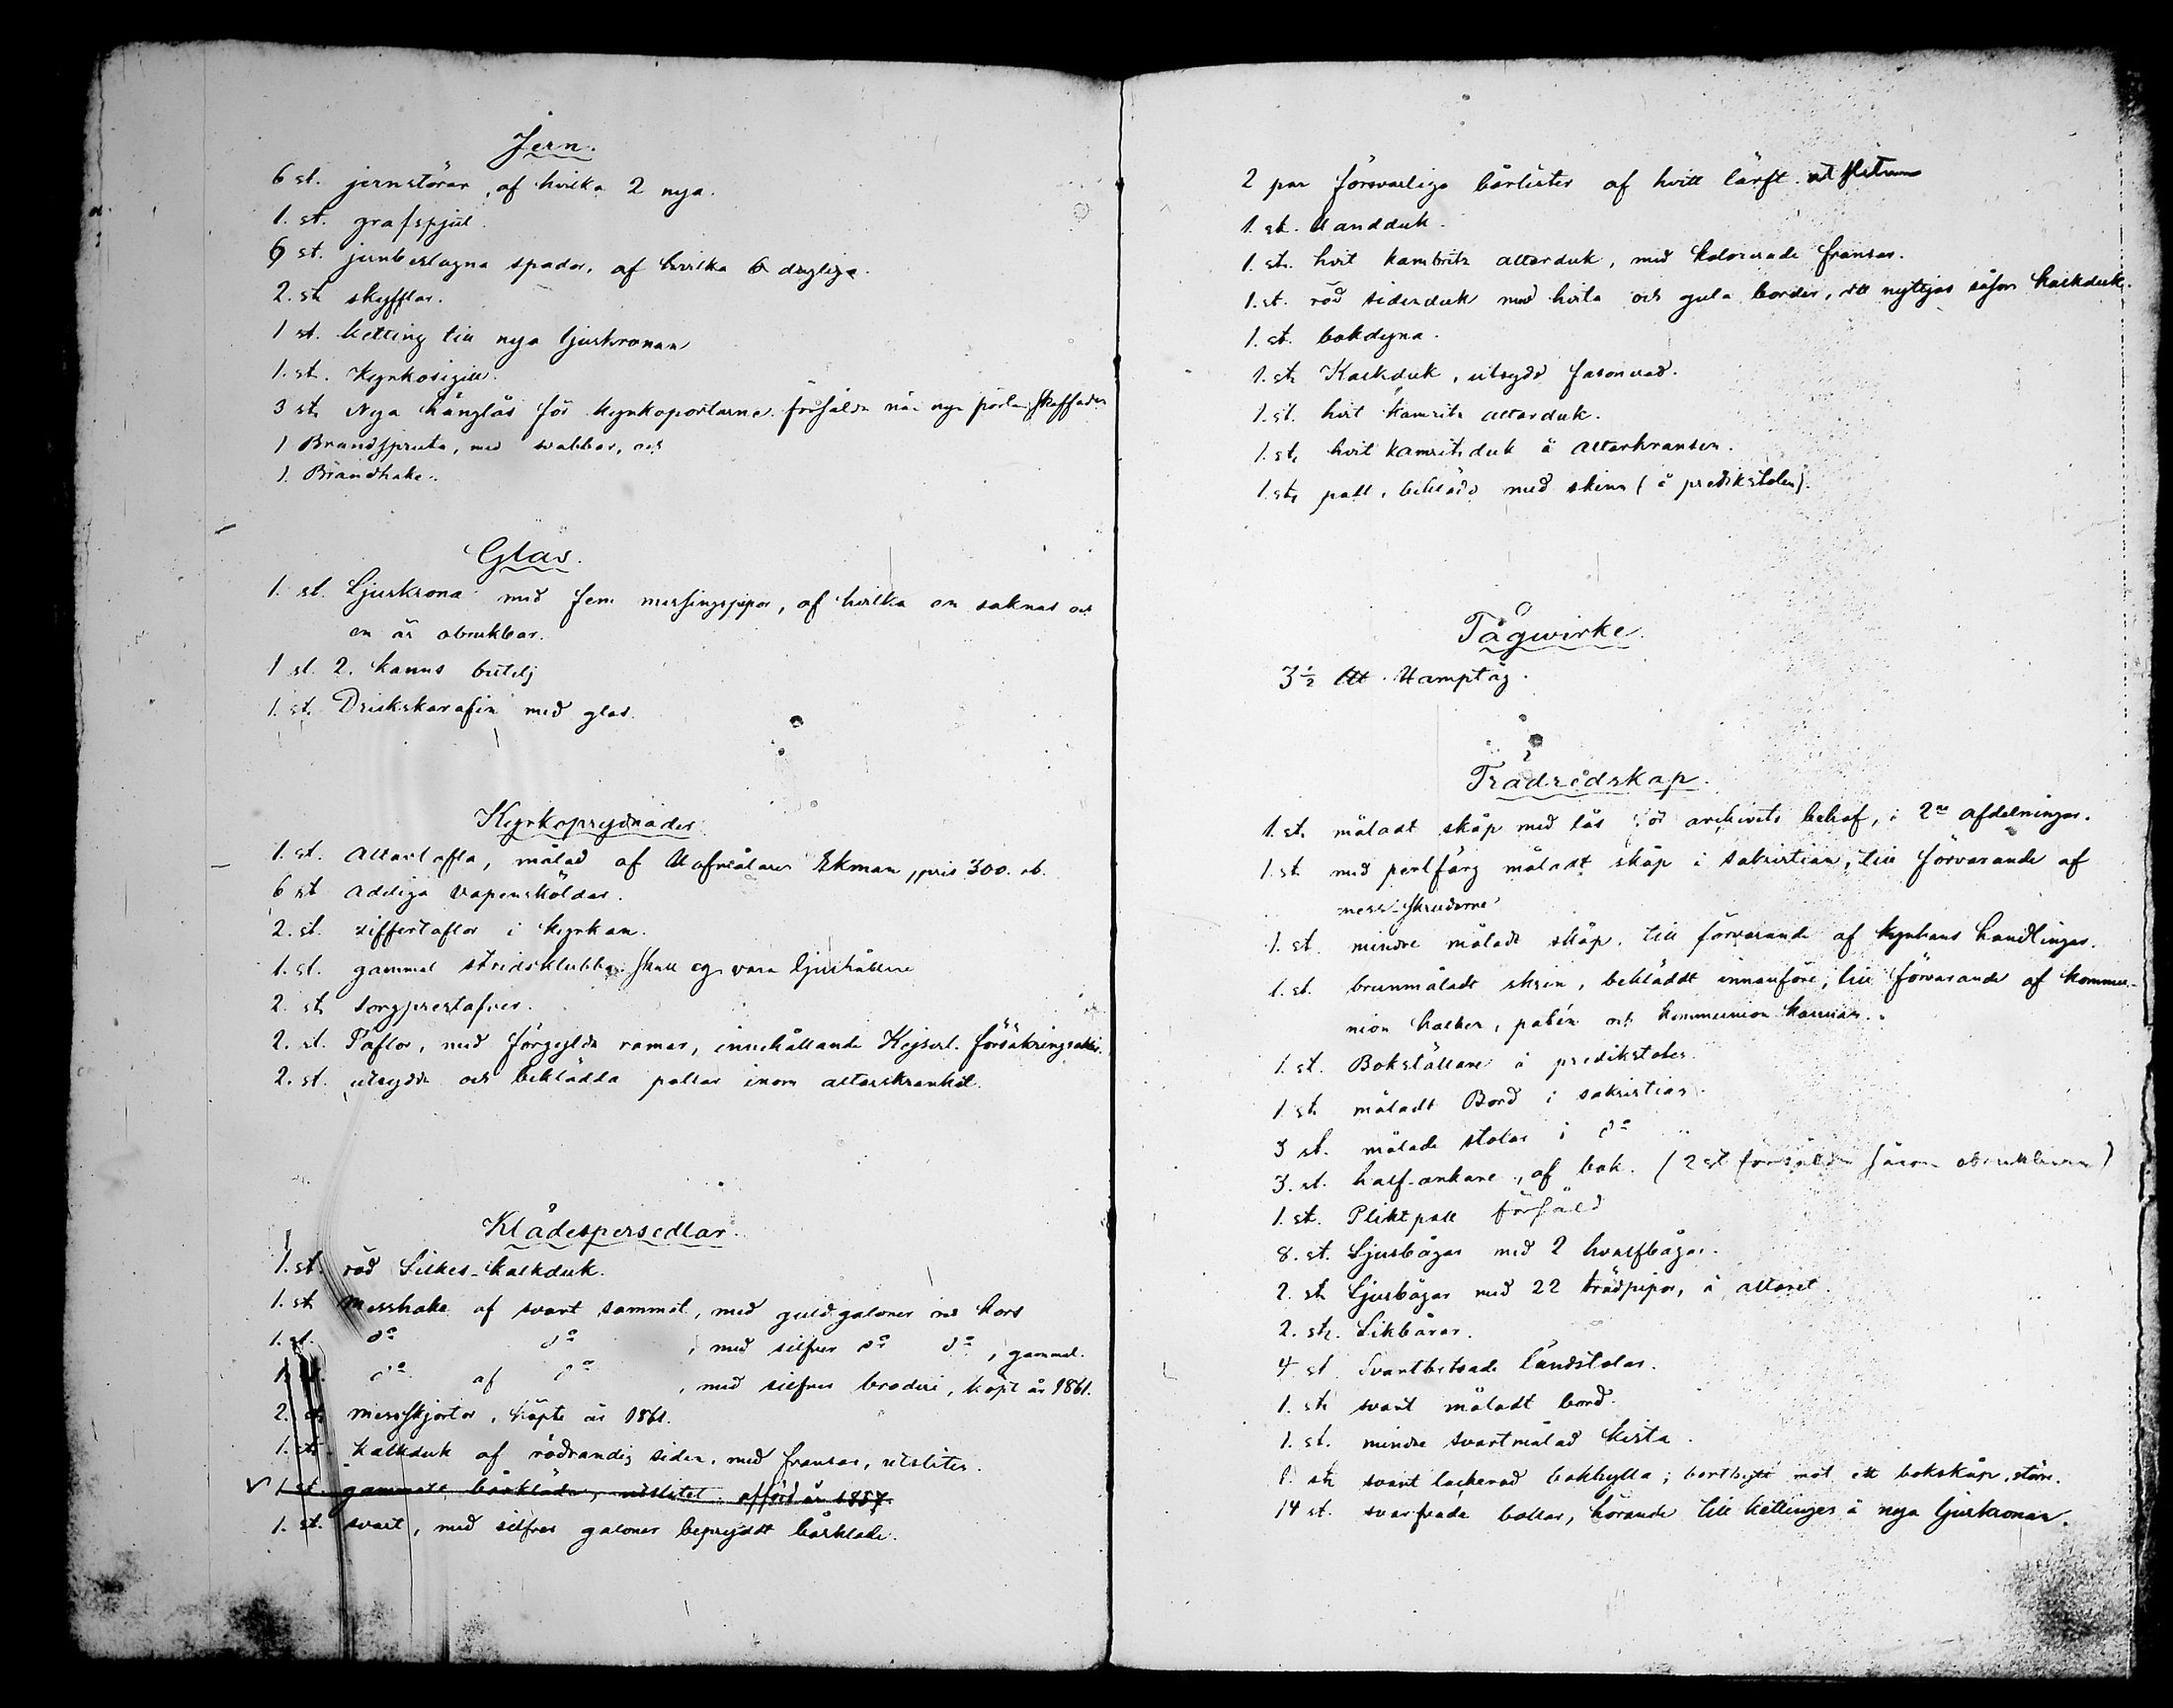 Jern.
6 st. jernstörar, af hvilka 2 nya.
1. st. grafspjut.
6 st. jernbeslagna spadar, af hvilka 6 dugliga.
2. st. skyfflar.
1 st. ketting till nya ljuskronan
1. st. Kyrkosigill.
3 st. Nya hänglås för kyrkoportarne. försålda när nya skaffades
1 Brandspruta, med svabbar, och
1. Brandhake.
Glas.
1. st. Ljuskrona med fem messingspipor, af hvilka en saknas och
en är obrukbar.
1 st. 2. kanns butelj
1. st. Drickskarafin med glas.
Kyrkoprydnader
1. st. Altartafla, målad af Hofmålaren Ekman, pris 300. rb.
6 st adeliga vapensköldar.
2. st. siffertaflor i kyrkan.
1. st. gammal stridsklubba. skall eg. vara ljushållare
2. st. sorgprestafver.
2. st. Taflor, med förgyllda ramar, innehållande Kejserl. försäkringsakter.
2. st. utsydda och beklädda pallar inom altarskranket.
Klädespersedlar.
1. st. röd Silkes-kalkduk.
1. st. Messhake af svart sammet, med guldgaloner och kors
1. st. do do, med silfver do do, gammal.
1. st. do af do, med silfver broderi, köpt år 1861.
2. st. messskjortor, köpte år 1861.
1. st. kalkduk af rödrandig siden, med fransar, utsliten.
1 st. gammalt bårkläde, utslitet. afförd år 1887
1. st. svart, med silfver galoner beprydt bårkläde.
2 par försvarliga bårlister af hvitt lärft. utslitna
1. st. Handduk.
1. st. hvit kambriks altarduk, med kolorerade fransar.
1. st. röd sidenduk med hvita och gula border, att nyttjas såsom kalkduk.
1. st. bokdyna.
1. st. Kalkduk, utsydd fasonerad.
1. st. hvit kamriks altarduk.
1. st. hvit kamriksduk å altarkransen.
1. st. pall, beklädd med skinn (å predikstolen).
Tågwirke.
3½ Hamptåg.
Trädredskap.
1. st. måladt skåp med lås för archivets behof, i 2ne afdelningar.
1. st. med perlfärg måladt skåp i sakristian, till förvarande af
mess-skrudarne
1. st. mindre måladt skåp, till förvarande af kyrkans handlingar.
1. st. brunmåladt skrin, beklädt innanföre, till förvarande af kommu-
nion kalken, patén och kommunion kannan.
1. st. Bokställare å predikstolen.
1. st. måladt Bord i sakristian.
3 st. målade stolar i do
3. st. half-ankare, af bok. (2 st försålda såsom obrukbara)
1. st. Pliktpall försåld
8. st. Ljusbågar med 2 hvarfbågar.
2. st. Ljusbågar med 22 trädpipor, å altaret.
2. st. Likbårar.
4 st. Svartbetsade länstolar.
1. st. svart måladt bord.
1. st. mindre svartmålad kista.
1. st. svart lackerad bokhylla; bortbytt mot ett bokskåp, större.
14 st. svarfvade bollar, hörande till kettingen å nya ljuskronan.